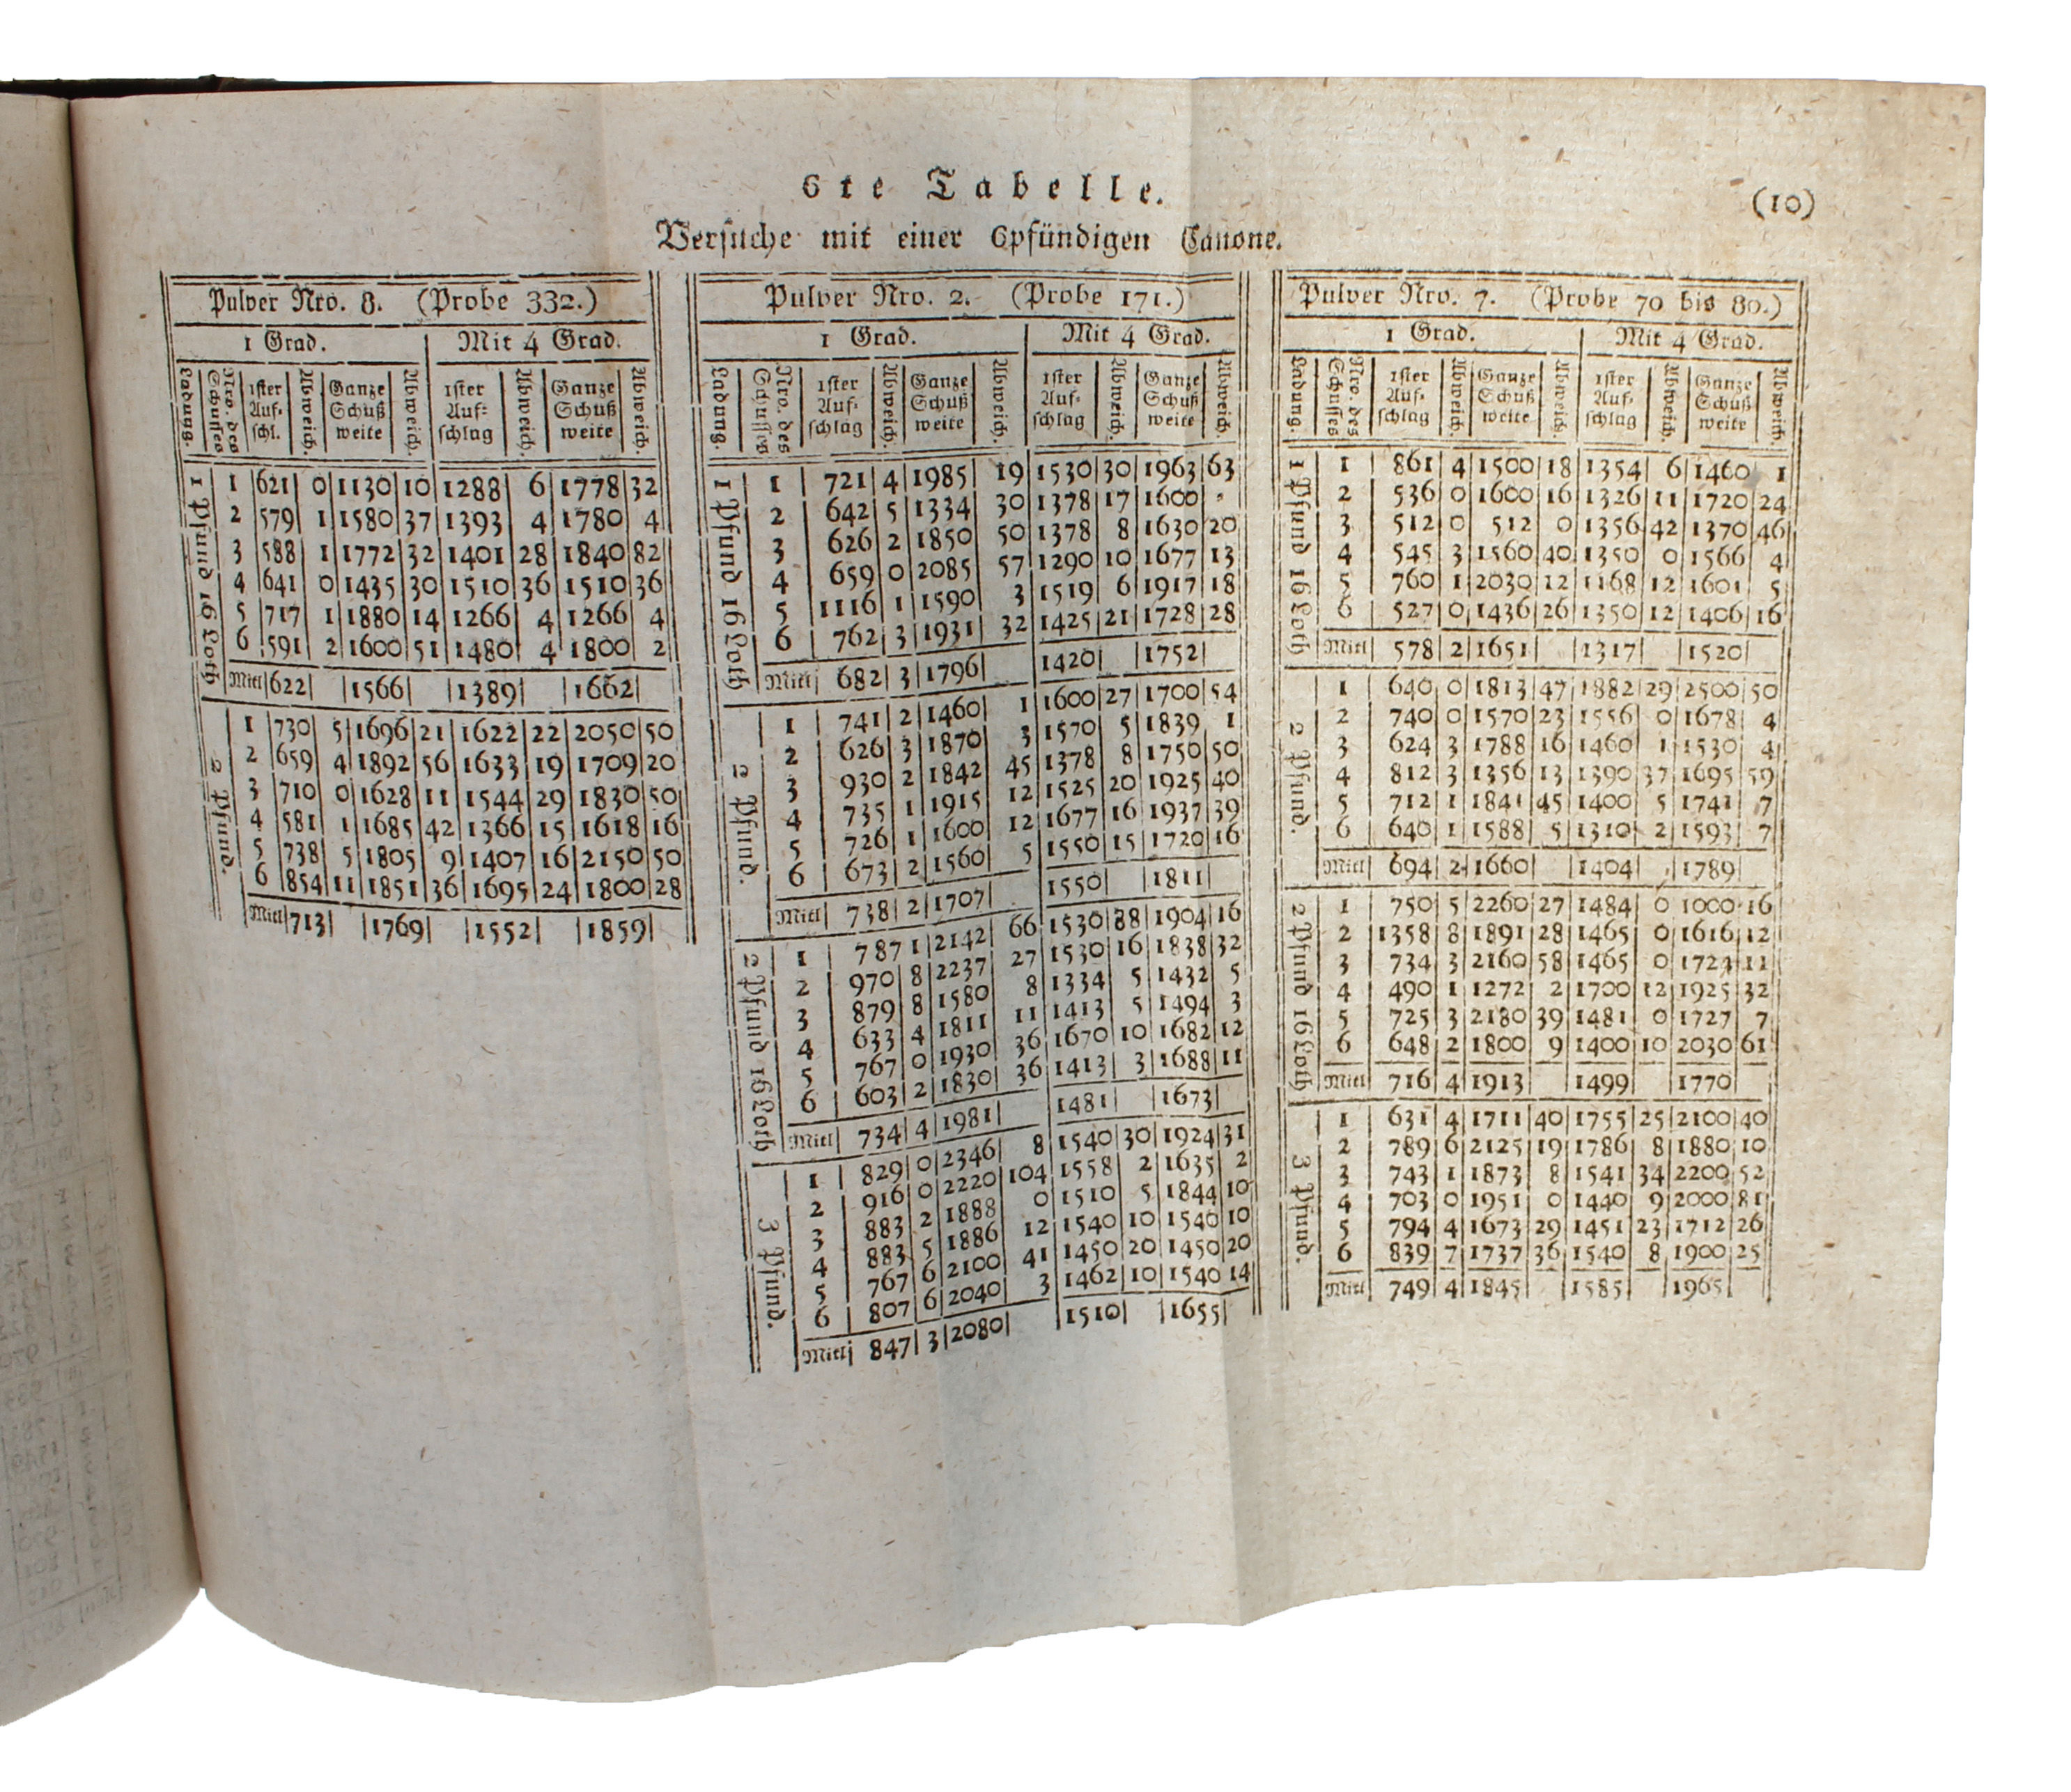 6te Tabelle.
(10)
Versuche mit einer 6pfündigen Canone.
Pulver Nro. 8. (Probe 332.)
1 Grad. Mit 4 Grad.
Ladung. Nro. des Schusses 1ster Auf- schl. Abweich. Ganze Schuß weite Abweich. 1ster Auf- schlag Abweich. Ganze Schuß weite Abweich.
1 Pfund 16 Loth
1 621 0 1130 10 1288 6 1778 32
2 579 1 1580 37 1393 4 1780 4
3 588 1 1772 32 1401 28 1840 82
4 641 0 1435 30 1510 36 1510 36
5 717 1 1880 14 1266 4 1266 4
6 591 2 1600 51 1480 4 1800 2
Mittl 622 1566 1389 1662
2 Pfund.
1 730 5 1696 21 1622 22 2050 50
2 659 4 1892 56 1633 19 1709 20
3 710 0 1628 11 1544 29 1830 50
4 581 1 1685 42 1366 15 1618 16
5 738 5 1805 9 1407 16 2150 50
6 854 11 1851 36 1695 24 1800 28
Mittl 713 1769 1552 1859
Pulver Nro. 2. (Probe 171.)
1 Grad. Mit 4 Grad.
Ladung. Nro. des Schusses 1ster Auf- schlag Abweich. Ganze Schuß weite Abweich. 1ster Auf- schlag Abweich. Ganze Schuß weite Abweich.
1 Pfund 16 Loth
1 721 4 1985 19 1530 30 1963 63
2 642 5 1334 30 1378 17 1600
3 626 2 1850 50 1378 8 1630 20
4 659 0 2085 57 1290 10 1677 13
5 1116 1 1590 3 1519 6 1917 18
6 762 3 1931 32 1425 21 1728 28
Mittl 682 3 1796 1420 1752
2 Pfund.
1 741 2 1460 1 1600 27 1700 54
2 626 3 1870 3 1570 5 1839 1
3 930 2 1842 45 1378 8 1750 50
4 735 1 1915 12 1525 20 1925 40
5 726 1 1600 12 1677 16 1937 39
6 673 2 1560 5 1550 15 1720 16
Mittl 738 2 1707 1550 1811
2 Pfund 16 Loth
1 787 1 2142 66 1530 88 1904 16
2 970 8 2237 27 1530 16 1838 32
3 879 8 1580 8 1334 5 1432 5
4 633 4 1811 11 1413 5 1494 3
5 767 0 1930 36 1670 10 1682 12
6 603 2 1830 36 1413 3 1688 11
Mittl 734 4 1981 1481 1673
3 Pfund.
1 829 0 2346 8 1540 30 1924 31
2 916 0 2220 104 1558 2 1635 2
3 883 2 1888 0 1510 5 1844 10
4 883 5 1886 12 1540 10 1540 10
5 767 6 2100 41 1450 20 1450 20
6 807 6 2040 3 1462 10 1540 14
Mittl 847 3 2080 1510 1655
Pulver Nro. 7. (Probe 70 bis 80.)
1 Grad. Mit 4 Grad.
Ladung. Nro. des Schusses 1ster Auf- schlag Abweich. Ganze Schuß weite Abweich. 1ster Auf- schlag Abweich. Ganze Schuß weite Abweich.
1 Pfund 16 Loth
1 861 4 1500 18 1354 6 1460 1
2 536 0 1600 16 1326 11 1720 24
3 512 0 512 0 1356 42 1370 46
4 545 3 1560 40 1350 0 1566 4
5 760 1 2030 12 1168 12 1601 5
6 527 0 1436 26 1350 12 1406 16
Mittl 578 2 1651 1317 1520
2 Pfund.
1 640 0 1813 47 1882 29 2500 50
2 740 0 1570 23 1556 0 1678 4
3 624 3 1788 16 1460 1 1530 4
4 812 3 1356 13 1390 37 1695 59
5 712 1 1841 45 1400 5 1741 7
6 640 1 1588 5 1310 2 1593 7
Mittl 694 2 1660 1404 1789
2 Pfund 16 Loth
1 750 5 2260 27 1484 0 1000 16
2 1358 8 1891 28 1465 0 1616 12
3 734 3 2160 58 1465 0 1724 11
4 490 1 1272 2 1700 12 1925 32
5 725 3 2180 39 1481 0 1727 7
6 648 2 1800 9 1400 10 2030 61
Mittl 716 4 1913 1499 1770
3 Pfund.
1 631 4 1711 40 1755 25 2100 40
2 789 6 2125 19 1786 8 1880 10
3 743 1 1873 8 1541 34 2200 52
4 703 0 1951 0 1440 9 2000 81
5 794 4 1673 29 1451 23 1712 26
6 839 7 1737 36 1540 8 1900 25
Mittl 749 4 1845 1585 1965